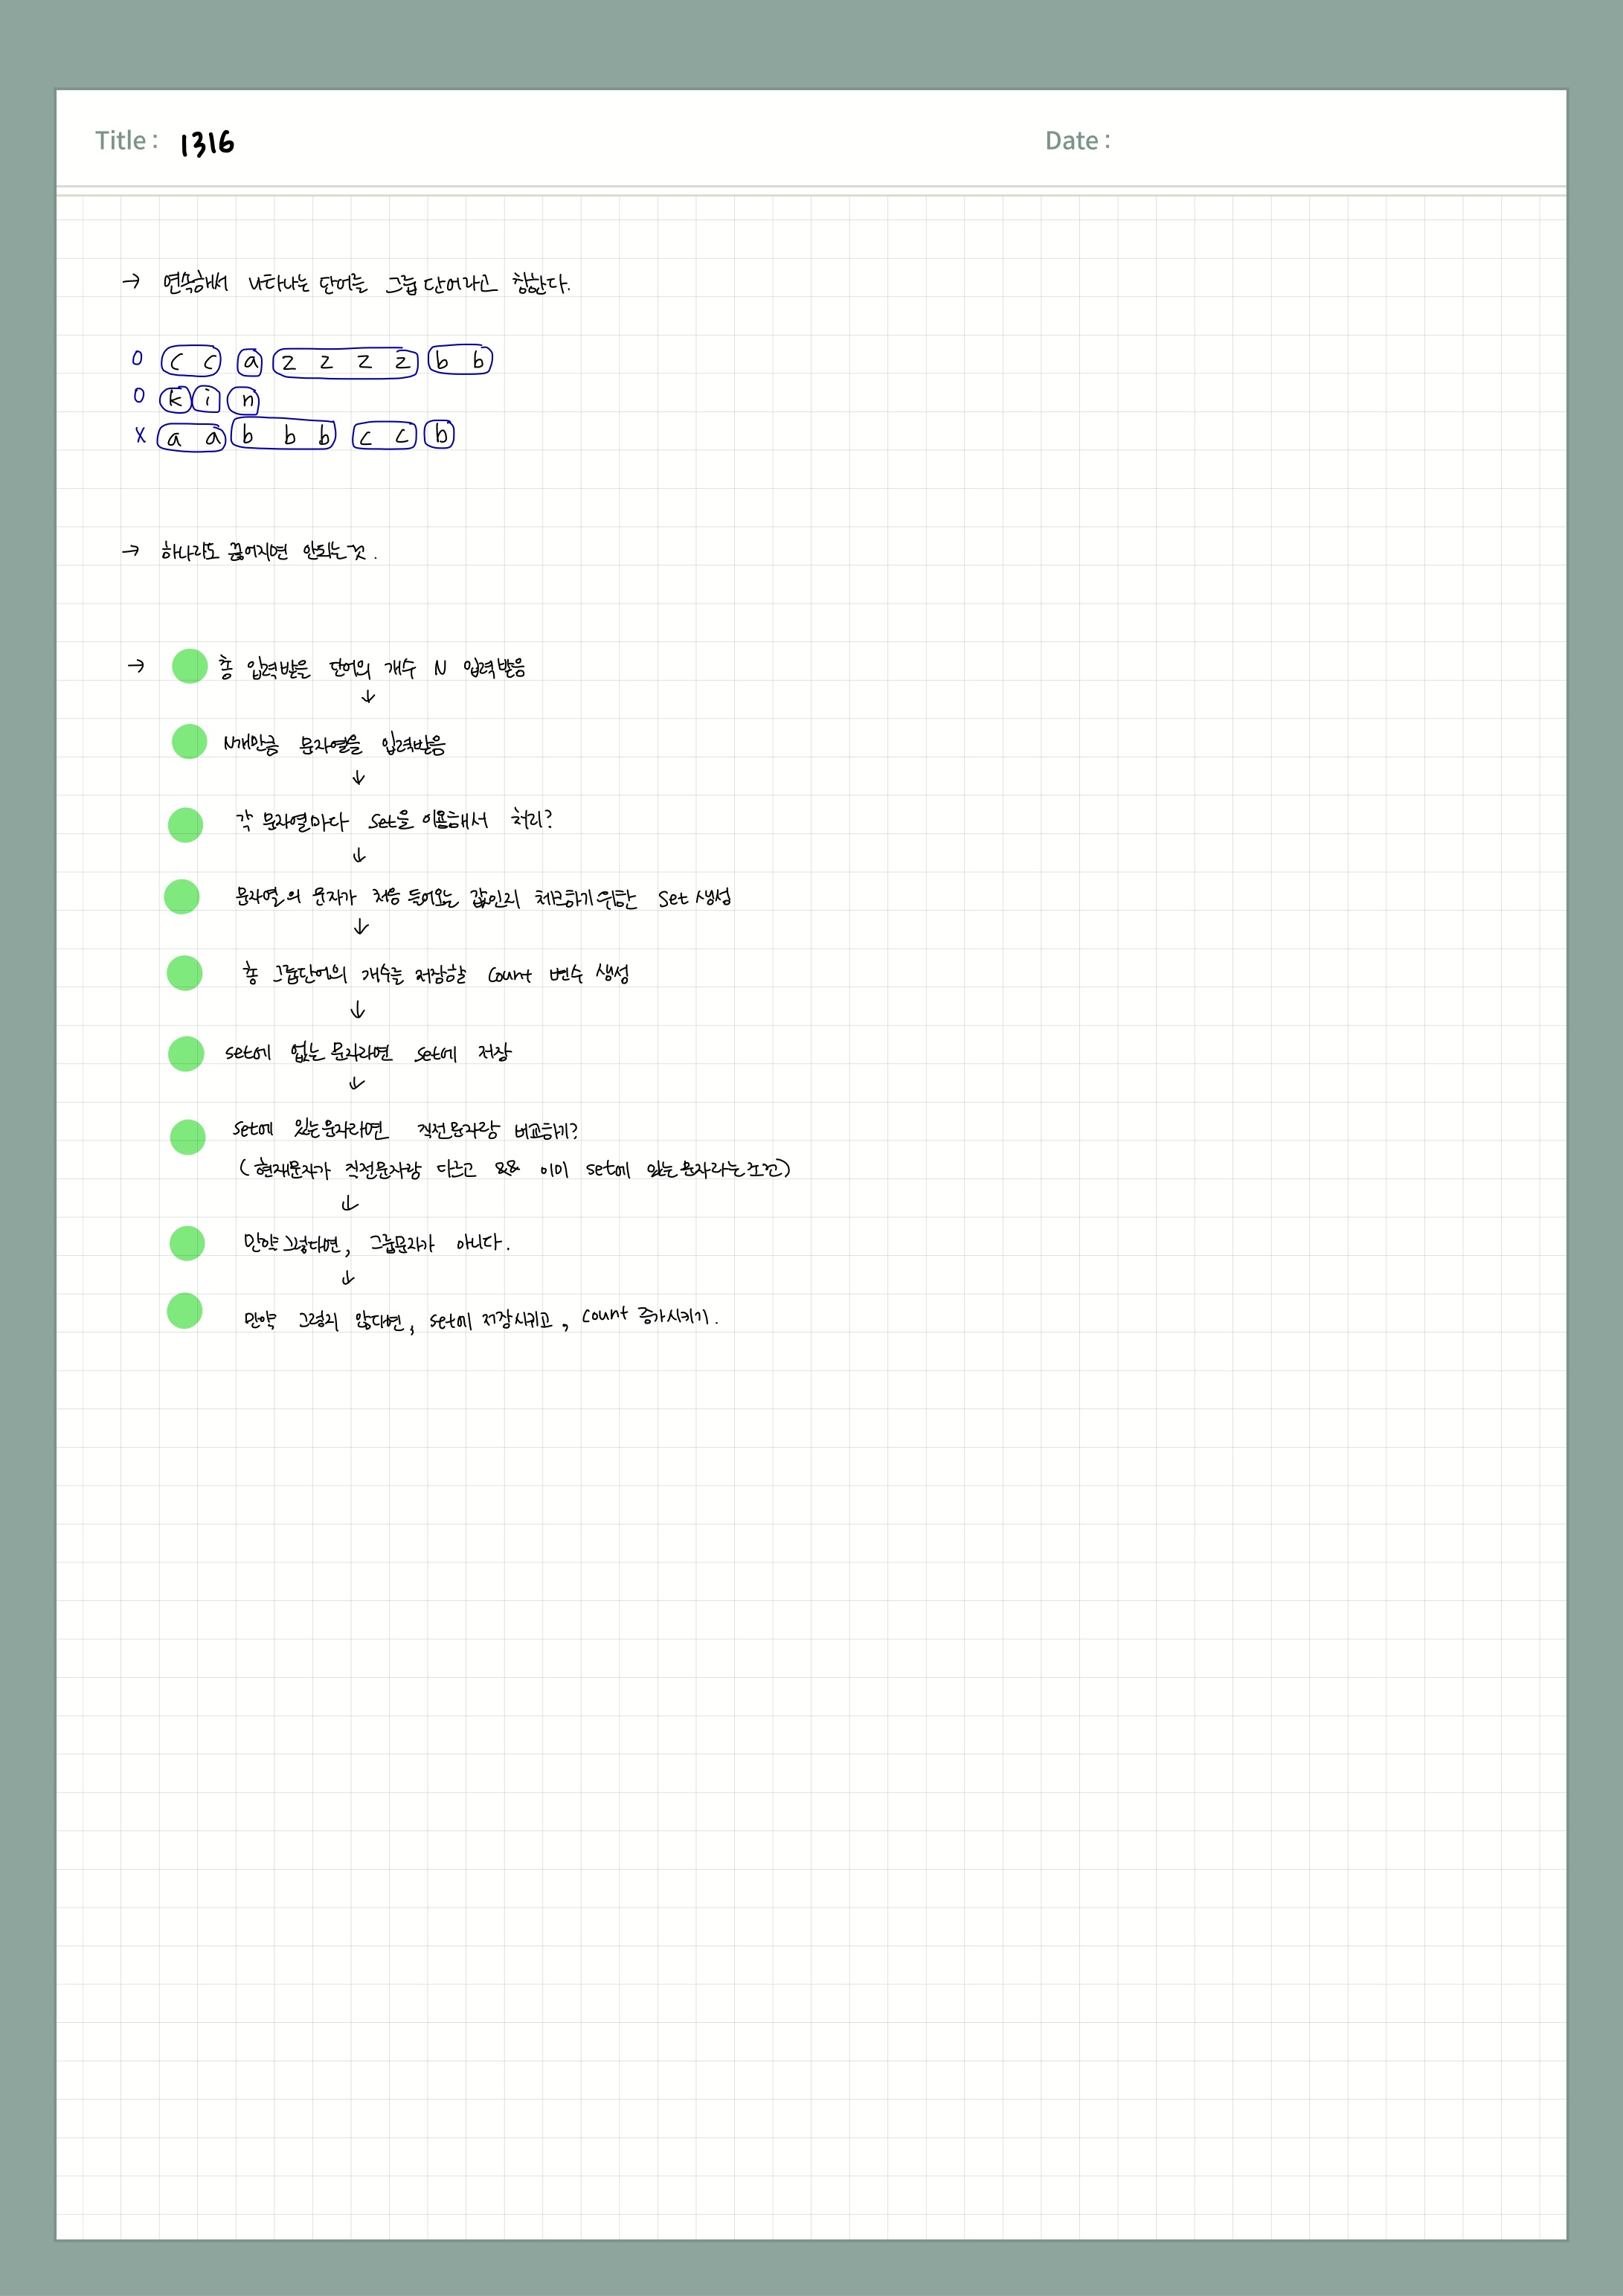 Title : 1316
Date :
→ 연속해서 나타나는 단어를 그룹 단어라고 칭한다.
O c c a z z z z b b
O k i n
X a a b b b c c b
→ 하나라도 끊어지면 안되는 것.
→ 총 입력받을 단어의 개수 N 입력받음
↓
N개만큼 문자열을 입력받음
↓
각 문자열마다 set을 이용해서 처리?
↓
문자열의 문자가 처음 들어오는 값인지 체크하기 위한 Set 생성
↓
총 그룹단어의 개수를 저장할 count 변수 생성
↓
set에 없는 문자라면 set에 저장
↓
set에 있는 문자라면 직전문자랑 비교하기?
(현재문자가 직전문자랑 다르고 && 이미 set에 있는 문자라는 조건)
↓
만약 그렇다면, 그룹문자가 아니다.
↓
만약 그렇지 않다면, set에 저장시키고, count 증가시키기.